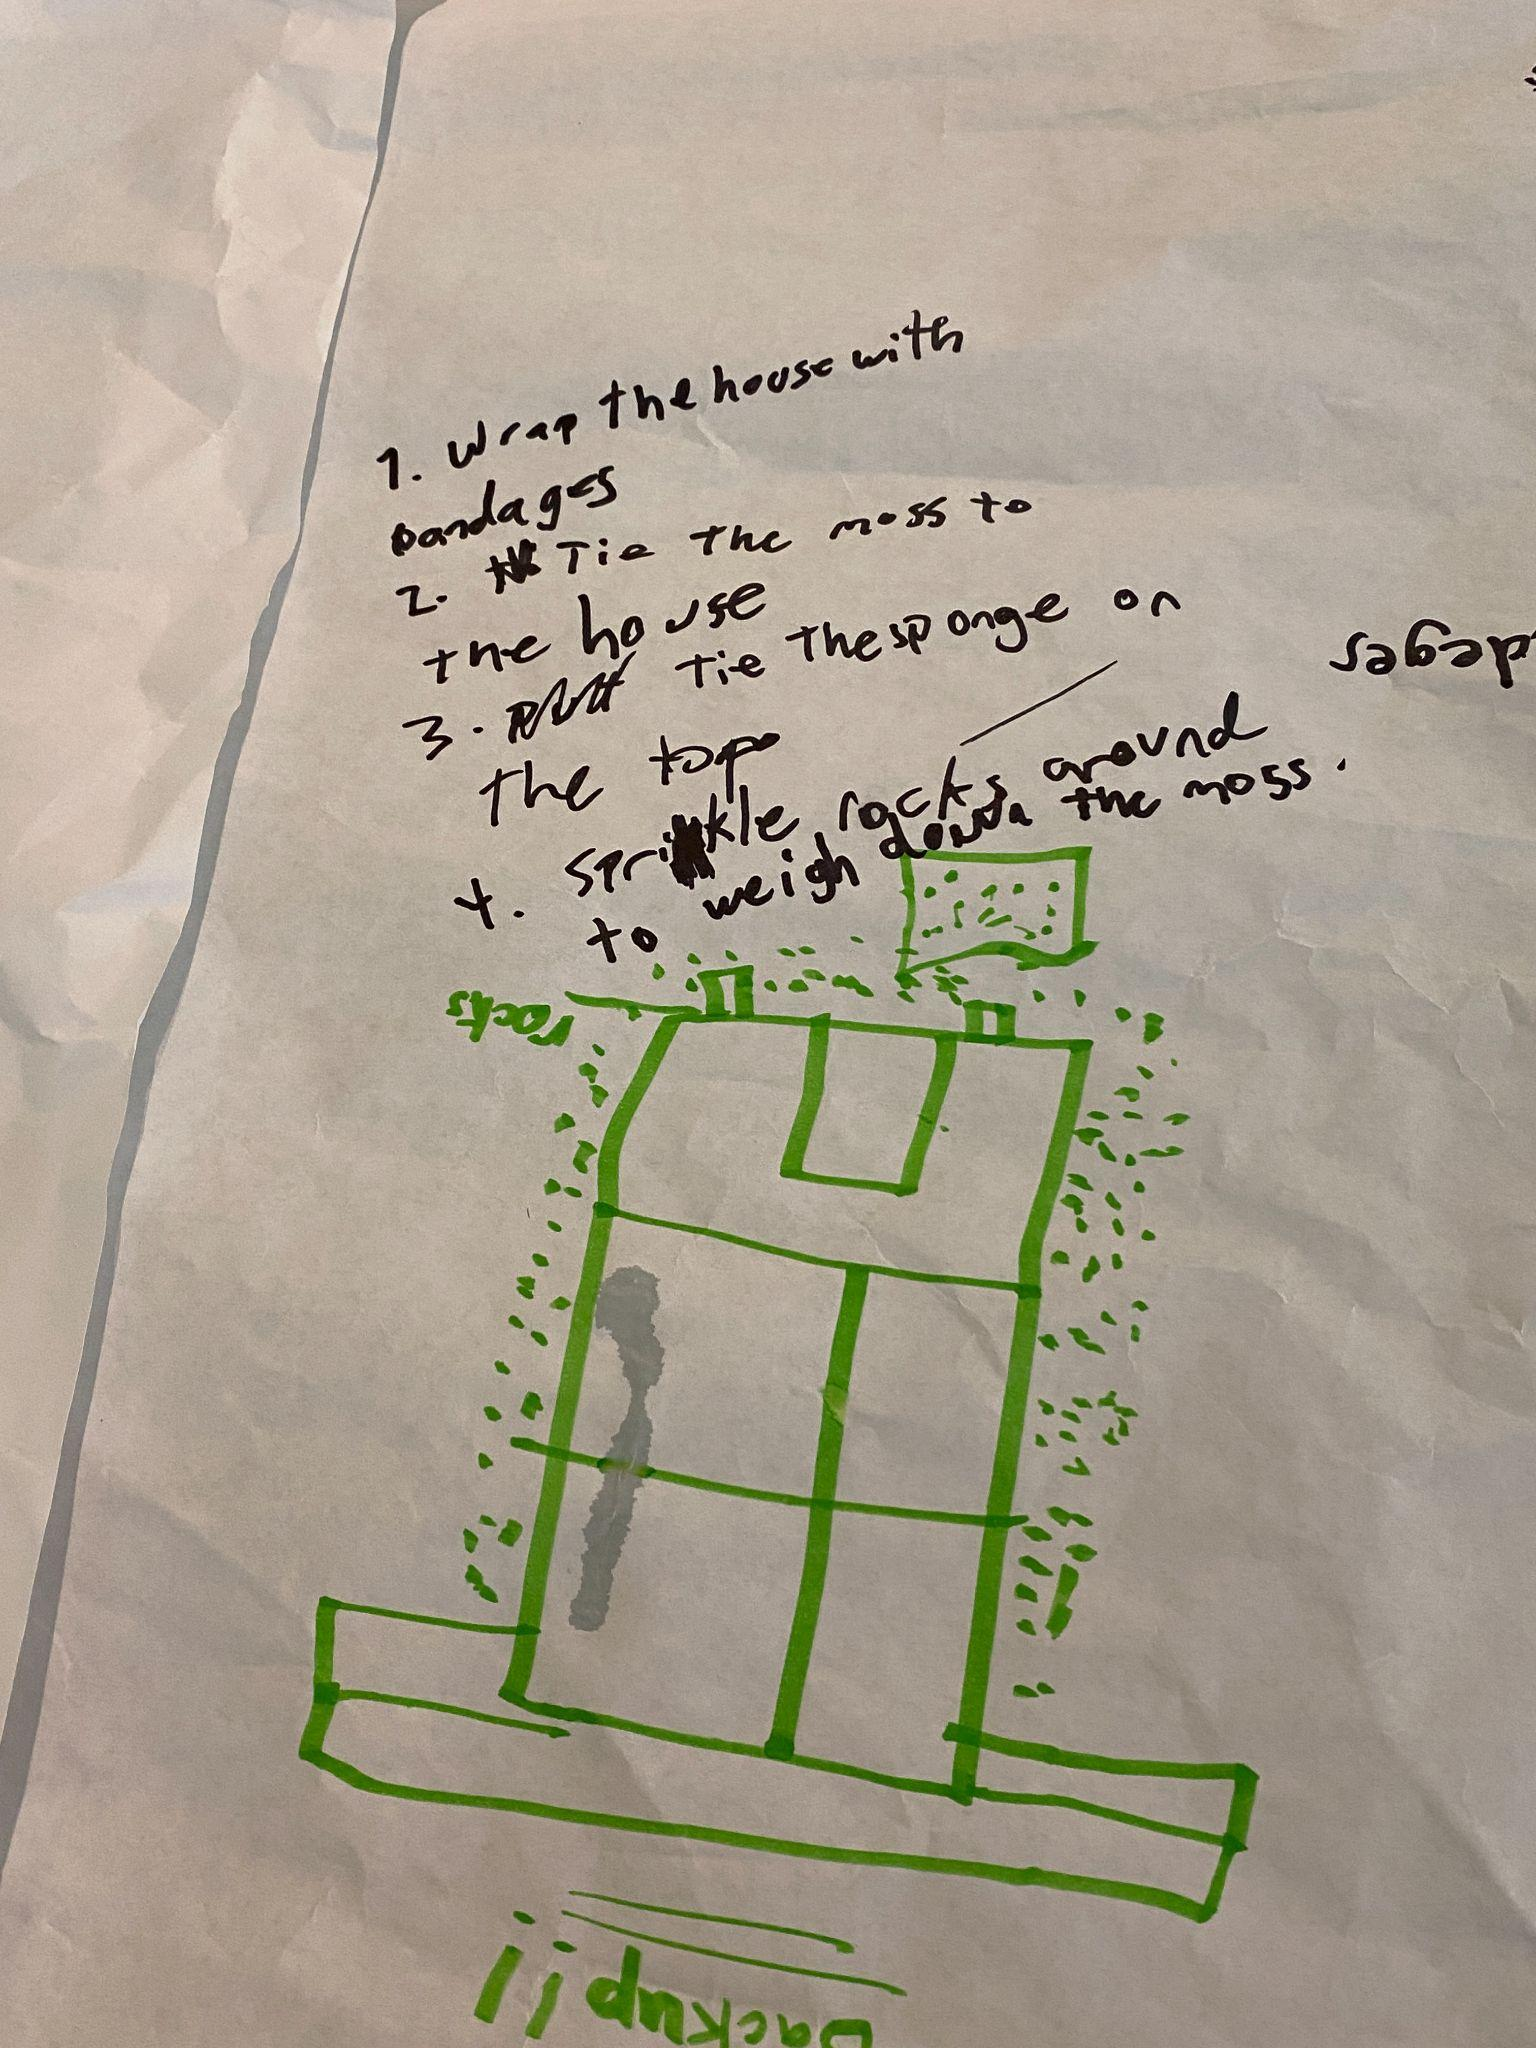 1. Wrap the house with
bandages
2. Tie the moss to
the house
3. tie the sponge on
the top
4. sprinkle rocks around
to weigh down the moss.
rocks
backup!!